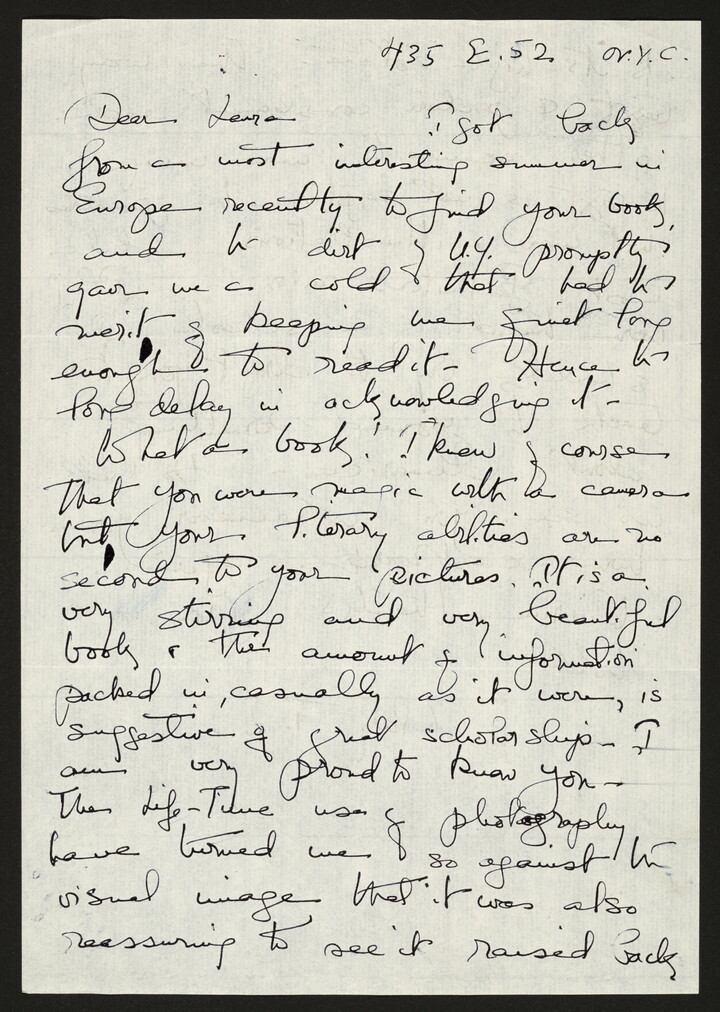 435 E. 52 N.Y.C.
Dear Laura I got back
from a most interesting summer in
Europe recently to find your book,
and the dirt of N.Y. promptly
gave me a cold that had the
merit of keeping me quiet long
enough to read it – Hence the
long delay in acknowledging it –
What a book! I knew of course
that you were magic with a camera
but your literary abilities are no
second to your pictures. It is a
very stirring and very beautiful
book & the amount of information
packed in, casually as it were, is
suggestive of great scholarship – I
am very proud to know you –
The Life-Time use of photography
have turned me so against the
visual image that it was also
reassuring to see it raised back